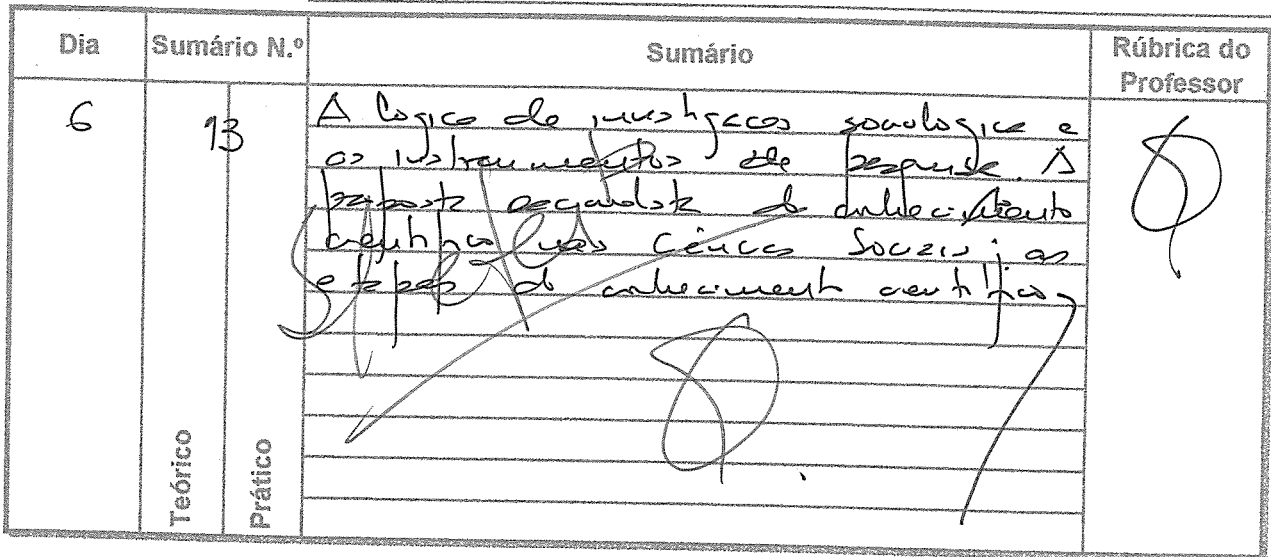 Dia Sumário N.º Sumário Rúbrica do Professor
6 13 A logica de investigacao sociologica e
os instrumentos de pesquisa. A
do conhecimento
cientifico nas Ciencias Sociais; as
etapas do conhecimento cientifico
Teórico Prático